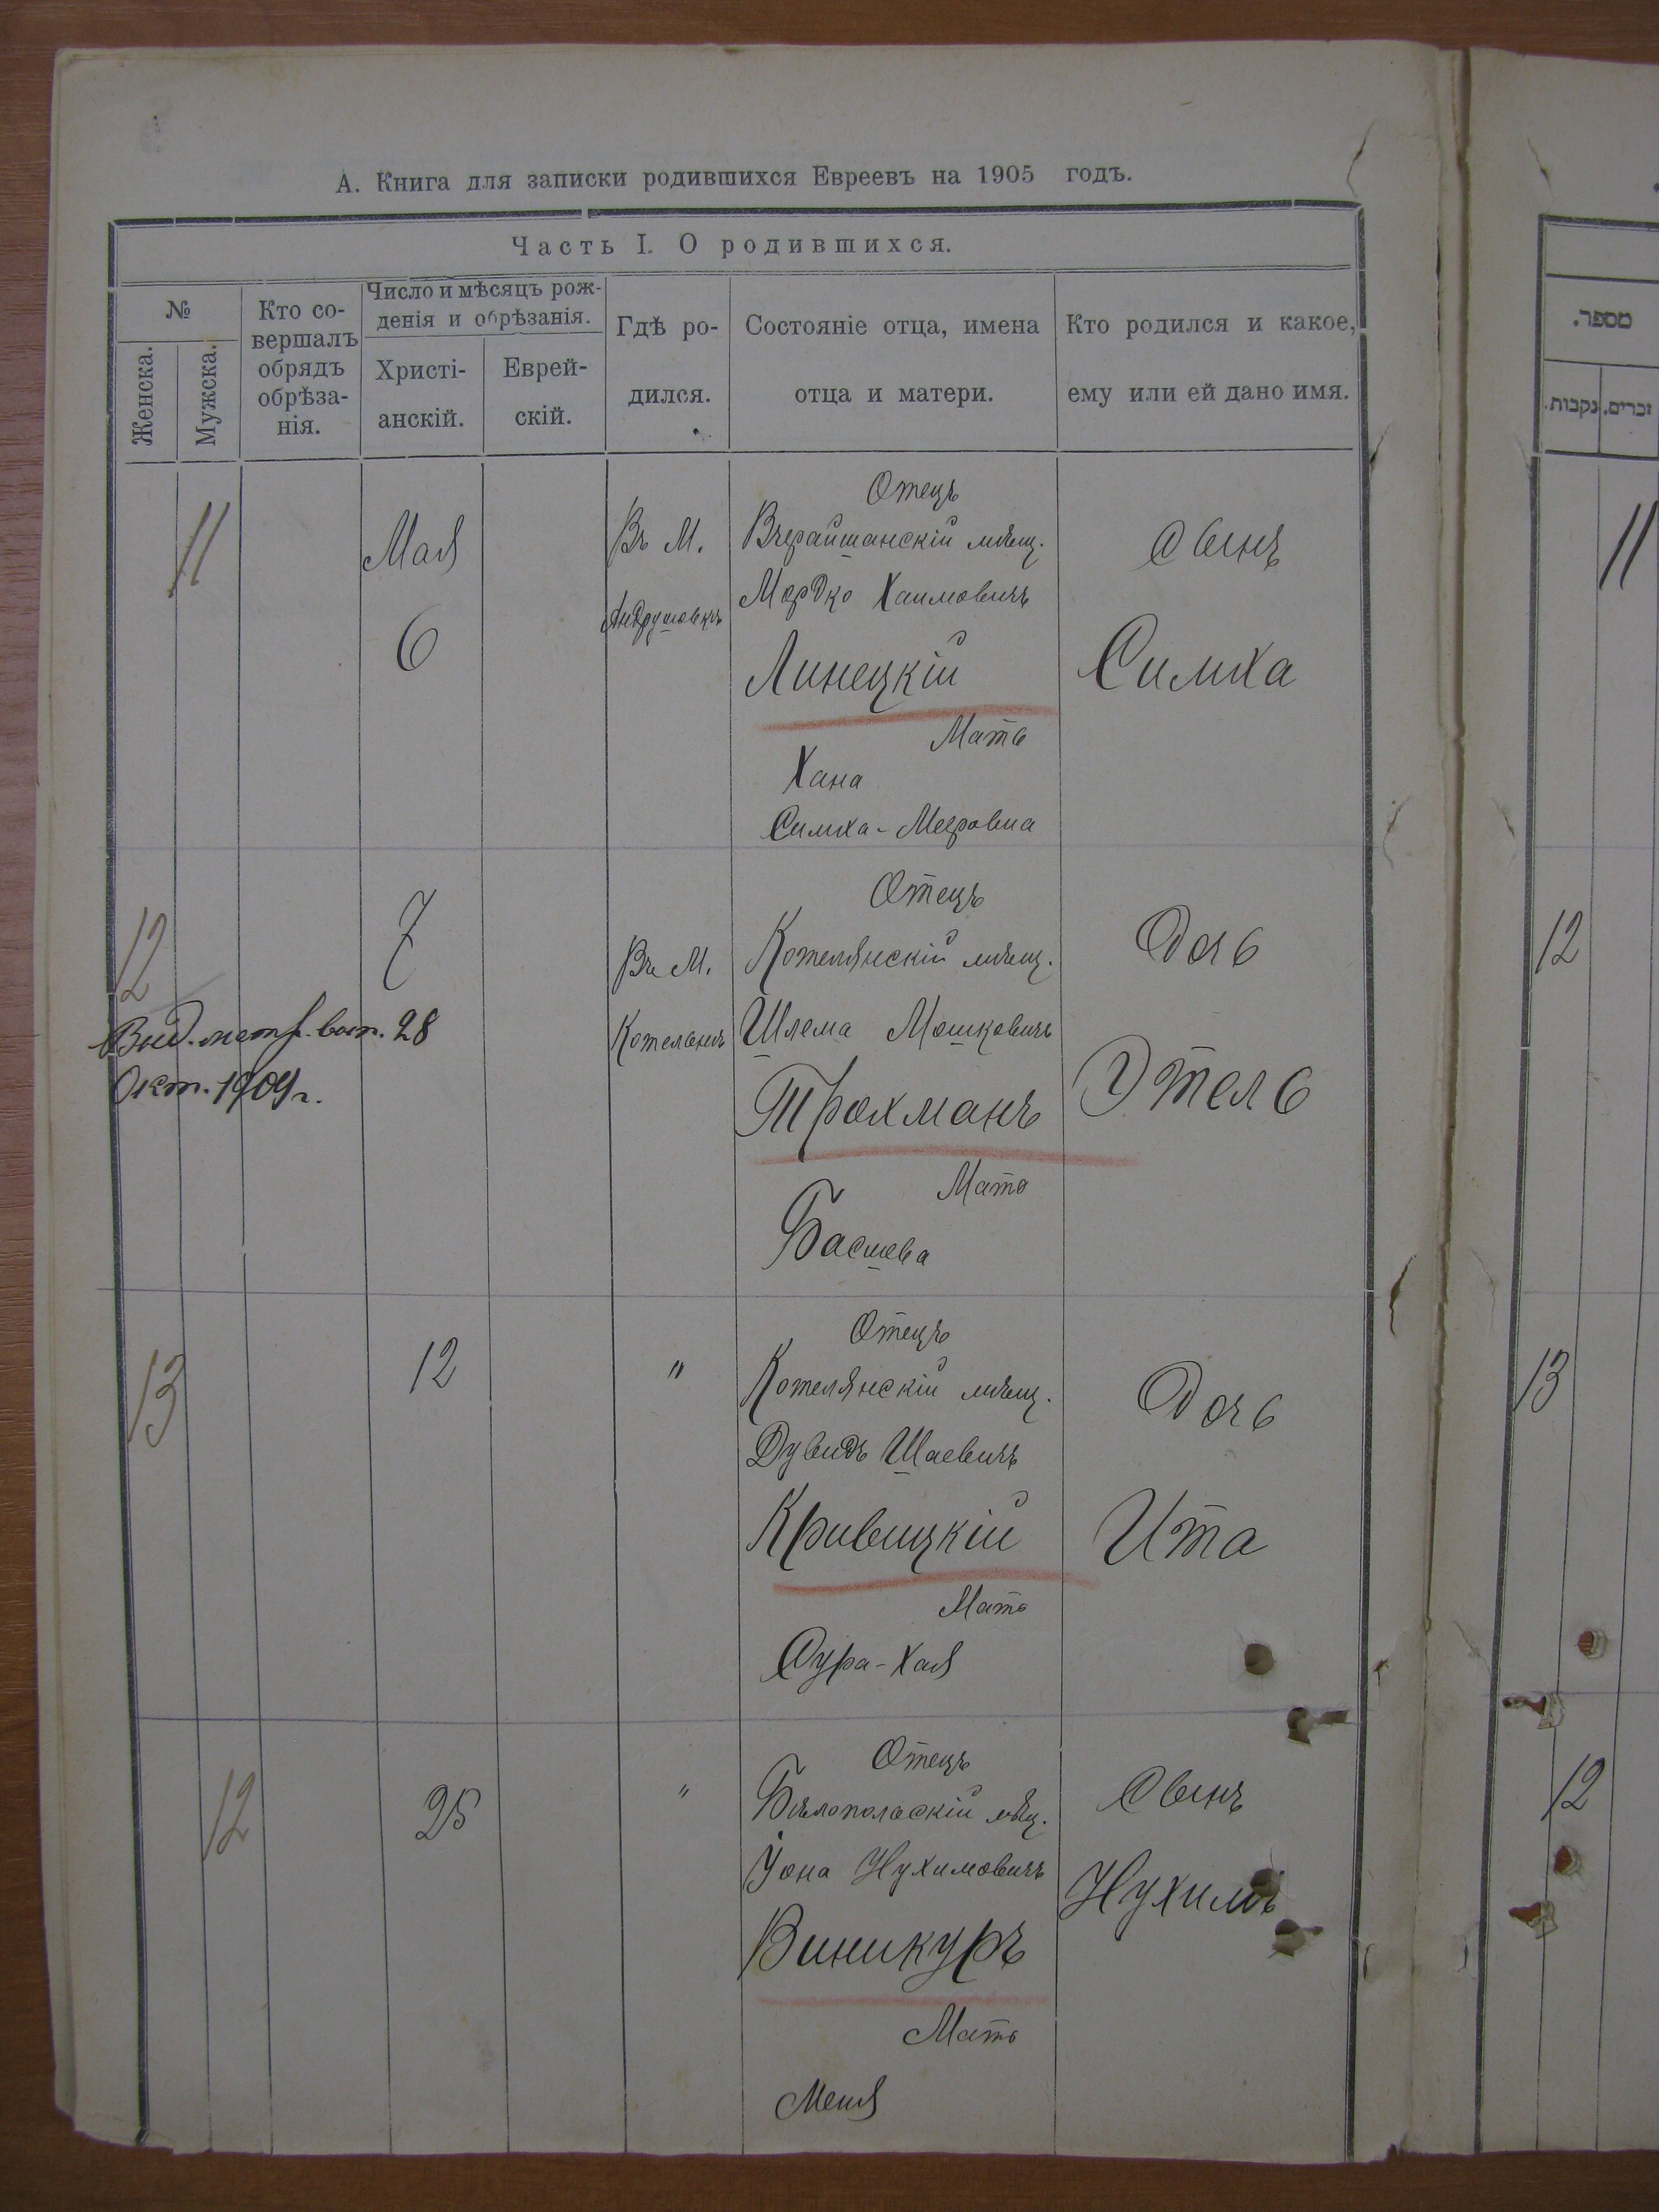 А. Книга для записки родившихся Евреевъ на 1905 годъ.
Часть I. О родившихся.
№
Женска.
Мужска.
Кто со-
вершалъ
обрядъ
обрѣза-
нія.
Число и мѣсяцъ рож-
денія и обрѣзанія.
Христі-
анскій.
Еврей-
скій.
Гдѣ ро-
дился.
Состояніе отца, имена
отца и матери.
Кто родился и какое,
ему или ей дано имя.
מספר.
נקבות.
זכרים.
11
Мая
6
Въ М.
Андрушовкѣ
Отецъ
Вчерайшанскій мѣщ.
Мордко Хаимовичъ
Линецкій
Мать
Хана
Симха-Мееровна
Сынъ
Симха
11
12
7
Выд. метр. вып. 28
Окт. 1909 г.
Въ М.
Котельнѣ
Отецъ
Котелянскій мѣщ.
Шлема Мошковичъ
Трохманъ
Мать
Басшева
Дочь
Этель
12
13
12
"
Отецъ
Котелянскій мѣщ.
Дувидъ Шаевичъ
Кривицкій
Мать
Сура-Хая
Дочь
Ита
13
12
25
"
Отецъ
Бѣлопольскій мѣщ.
Іона Нухимовичъ
Виникуръ
Мать
Меня
Сынъ
Нухимъ
12